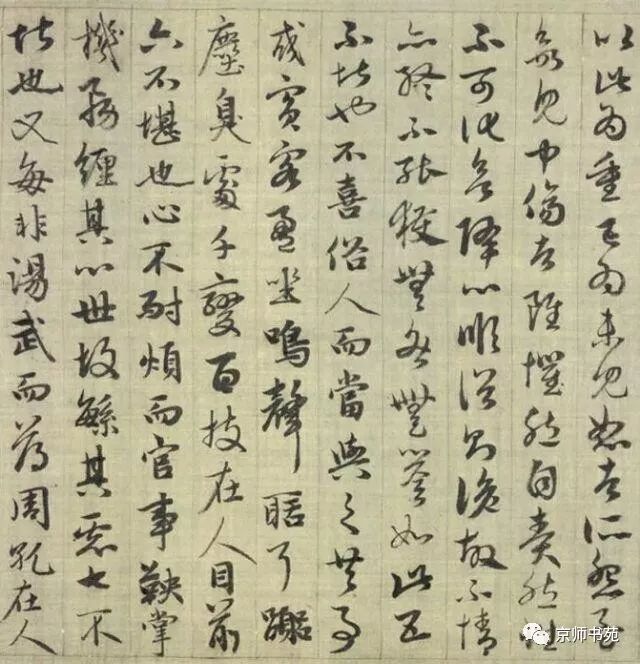 以此為重已為未見恕者所怨至
欲見中傷者雖懼然自責然性
不可化欲降心順俗則詭故不情
亦終不能獲無咎無譽如此五
不堪也不喜俗人而當與之共事
或賓客盈坐鳴聲聒耳
塵臭處千變百技在人目前
六不堪也心不耐煩而官事鞅掌
機務纏其心世故繁其慮七不
堪也又每非湯武而薄周孔在人
京师书苑